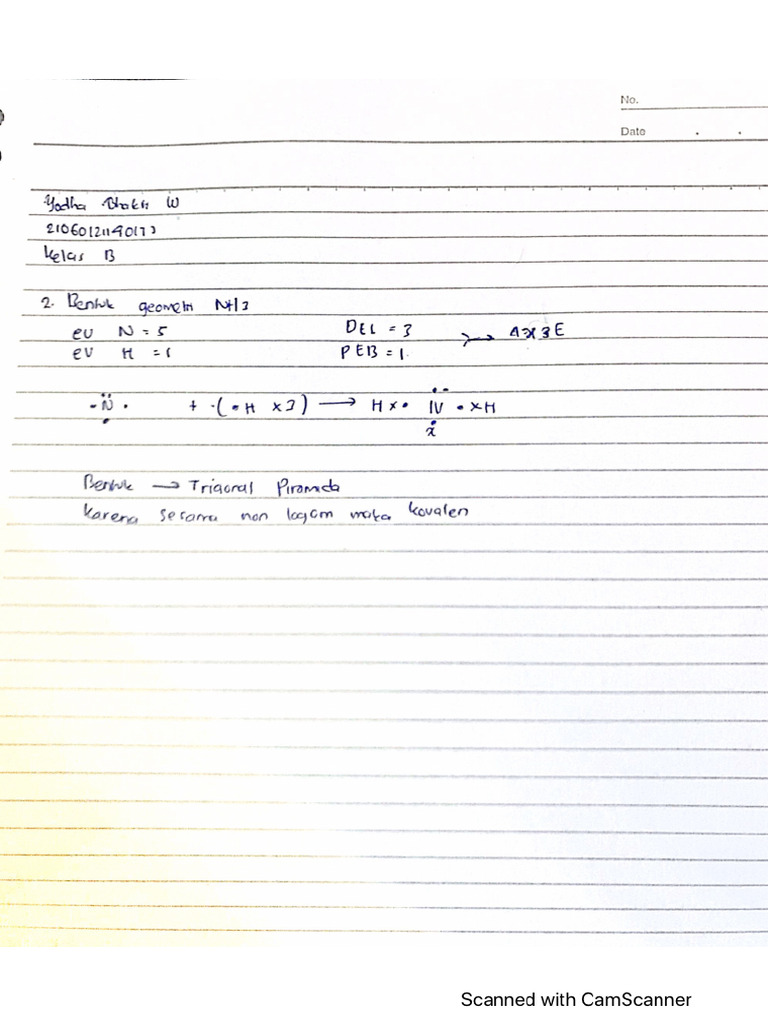 No.
Date
Yodha Bhakti W
Kelas B
2. Bentuk geometri NH3
eV N = 5
DEI = 3
AX3E
eV H = 1
PEB = 1.
N + (•H x3) → H x• N •x H
x
Bentuk → Trigonal Piramida
Karena sesama non logam maka kovalen
Scanned with CamScanner